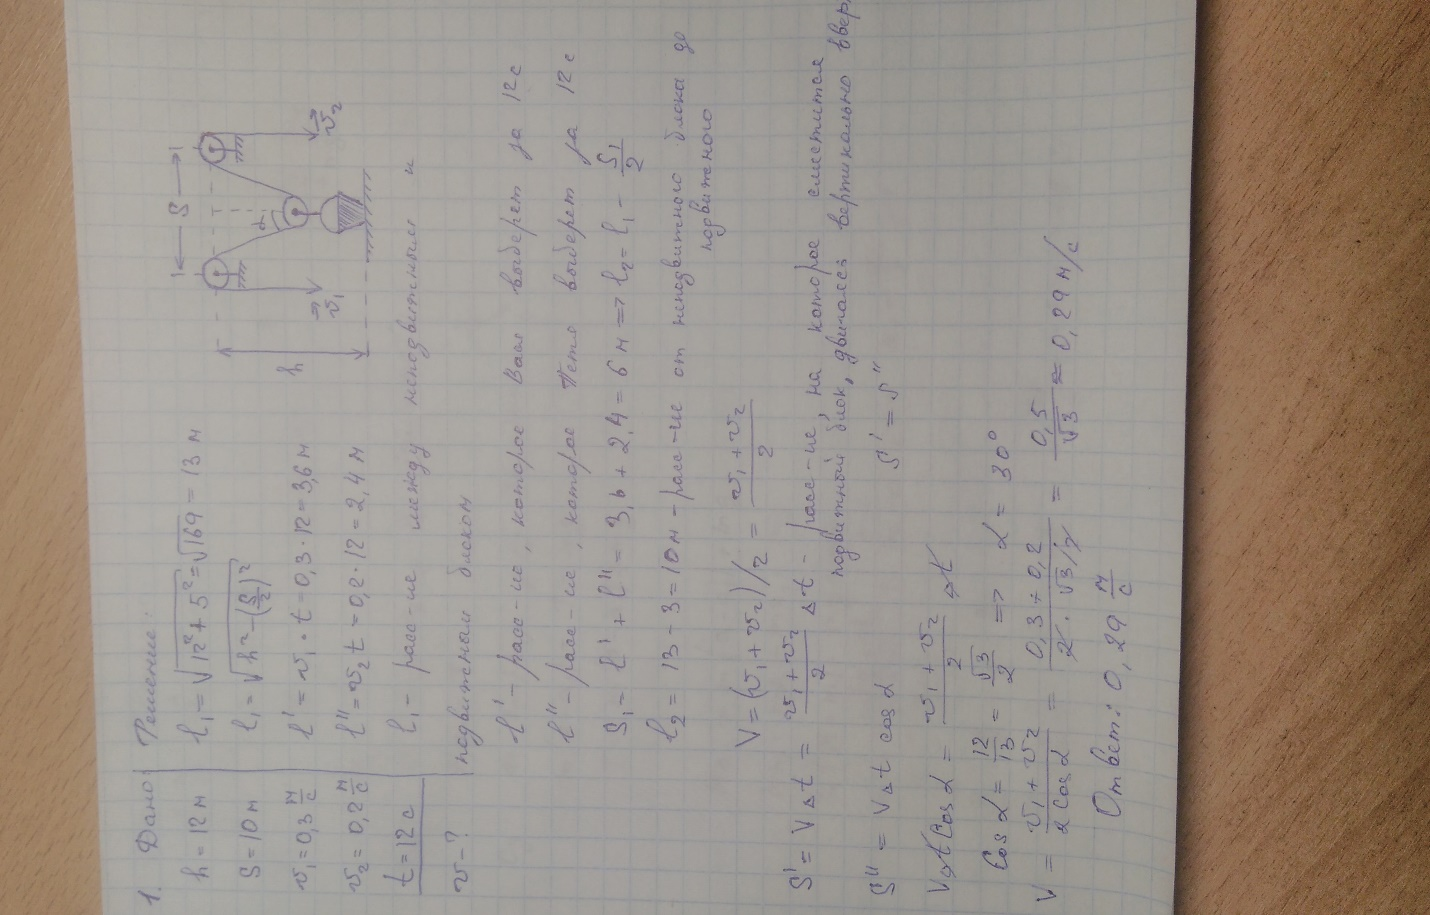 1. Дано: Решение:
h = 12 м
S = 10 м
v₁ = 0,3 м/с
v₂ = 0,2 м/с
t = 12 с
v – ?
l₁ = √(12² + 5²) = √169 = 13 м
l₁ = √(h² – (S/2)²)
l' = v₁ · t = 0,3 · 12 = 3,6 м
l'' = v₂ t = 0,2 · 12 = 2,4 м
l₁ – расс-ие между неподвижным и
подвижным блоком
S
α
h
v₁
v₂
l' – расс-ие, которое Вася выберет за 12 с
l'' – расс-ие, которое Петя выберет за 12 с
S₁ – l' + l'' = 3,6 + 2,4 = 6 м => l₂ = l₁ – S₁/2
l₂ = 13 – 3 = 10 м – расс-ие от неподвижного блока до
подвижного
V = (v₁ + v₂)/2 = (v₁ + v₂)/2
S' = V Δt = (v₁ + v₂)/2 Δt – расс-ие, на которое сместится
подвижный блок, двигаясь вертикально вверх
S'' = V Δt cos α S' = S''
V Δt Cos α = (v₁ + v₂)/2 Δt
Cos α = 12/13 = √3/2 => α = 30°
V = (v₁ + v₂)/(2 Cos α) = (0,3 + 0,2)/(2 · √3/2) = 0,5/√3 ≈ 0,29 м/с
Ответ: 0,29 м/с